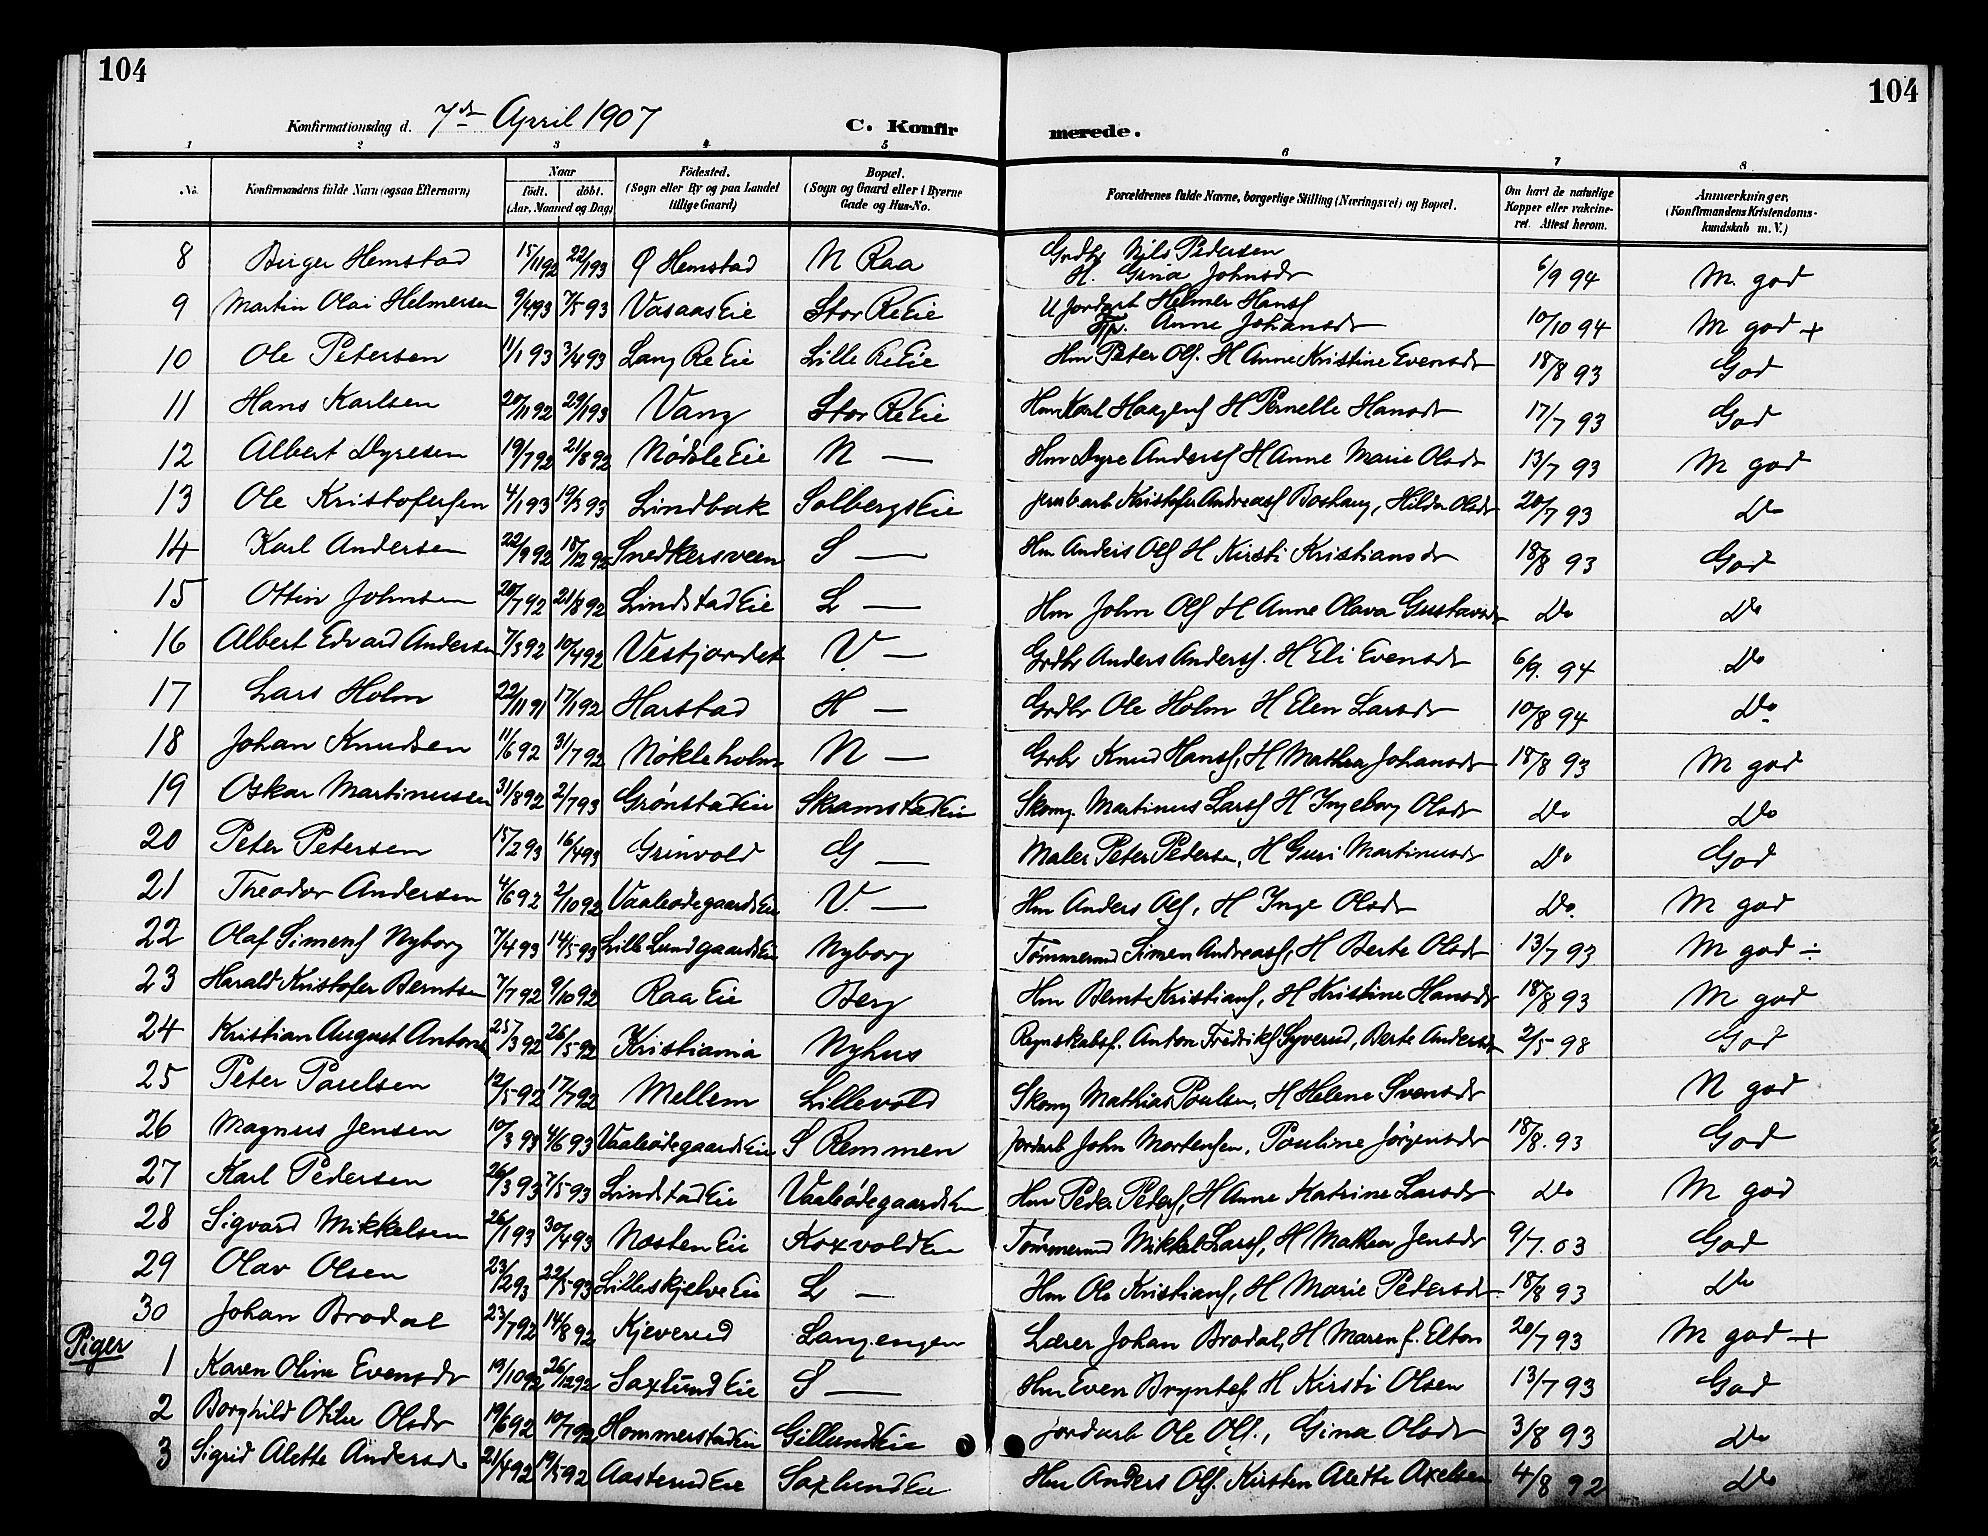 104
104
Konfirmationsdag d. 7de April 1907
C. Konfir merede.
1 2 3 4 5 6 7 8
No. Konfirmandens fulde Navn (ogsaa Efternavn) Naar födt. döbt. (Aar, Maaned og Dag) Födested. (Sogn eller By og paa Landet tillige Gaard) Bopæl. (Sogn og Gaard eller i Byerne Gade og Hus-No. Forældrenes fulde Navne, borgerlige Stilling (Næringsvei) og Bopæl. Om havt de naturlige Kopper eller vakcineret. Attest herom. Anmærkninger. (Konfirmandens Kristendomskundskab m. V.)
8 Birger Hemstad 15/11 92 22/1 93 Ø Hemstad N Raa Grdbr Nils Pedersen H. Gina Johnsdr 6/9 94 M. god
9 Martin Olai Helmersen 9/4 93 7/5 93 Vasaas Eie Stor Re Eie U Jordarb Helmer Hansf Tjp. Anne Johansdr 10/10 94 M god +
10 Ole Petersen 11/1 93 3/4 93 Lang Re Eie Lille Re Eie Hm Peter Olf. H Anne Kristine Evensdr 18/8 93 God
11 Hans Karlsen 20/11 92 29/1 93 Vang Stor Re Eie Hm Karl Haagenf H Pernelle Hansdr 17/7 93 God
12 Albert Dyresen 19/7 92 21/8 92 Nödsle Eie N — Hm Dyre Andersf H Anne Marie Olsdr 13/7 93 M god
13 Ole Kristofersen 4/1 93 19/3 93 Lindbak Solbergs Eie Jernb arb Kristofer Andreasf Boshaug, Hilda Olsdr 20/7 93 Do
14 Karl Andersen 22/9 92 18/12 92 Snedkersveen S — Hm Anders Olf H Kirsti Kristiansdr 18/8 93 God
15 Ottin Johnsen 20/7 92 21/8 92 Lindstad Eie L — Hm John Olf H Anne Olava Gustavsdr Do Do
16 Albert Edvard Andersen 7/3 92 10/4 92 Vestjordet V — Grdbr Anders Andersf. H Eli Evensdr 6/9. 94 Do
17 Lars Holm 22/11 91 17/1 92 Harstad H — Grdbr Ole Holm H Elen Larsdr 10/8 94 Do
18 Johan Knudsen 11/6 92 31/7 92 Nökleholm N — Grbr Knud Hansf, H Mathea Johansdr 18/8 93 M god
19 Oskar Martinussen 31/8 92 2/7 93 Grönstad Eie Skramstad Eie Skomg. Martinus Larsf H Ingeborg Olsdr Do Do
20 Peter Petersen 15/2 93 16/4 93 Grinvold G — Maler Peter Pedersen, H Guri Martinusdr Do God
21 Theodor Andersen 4/6 92 2/10 92 Vaaleödegaards Eie V. — Hm Anders Olf, H Inge Olsdr Do. M god
22 Olaf Simenf Nyborg 7/4 93 14/5 93 Lille Lundgaards Eie Nyborg Tömmermd Simen Andreasf, H Berte Olsdr 13/7 93 M god ÷
23 Harald Kristofer Berntsen 7/7 92 9/10 92 Raa Eie Berg Hm Bernt Kristianf, H Kristine Hansdr 18/8 93 M god
24 Kristian August Antonsen 25/3 92 26/5 92 Kristiania Nyhus Regnskabsf. Anton Fredrikf Syverud, Berte Andersdr 2/5 98 God
25 Peter Paulsen 12/5 92 17/7 92 Mellem Lillevold Skomg Mathias Poulsen, H Helene Svensdr N god
26 Magnus Jensen 10/3 93 4/6 93 Vaaleödegaards Eie S Remmen Jordarb John Mortensen, Pauline Jörgensdr 18/8. 93 God
27 Karl Pedersen 26/3 93 7/5 93 Lindstad Eie Vaaleödegaards Eie Hm Peder Pedersf, H Anne Katrine Larsdr Do M god
28 Sigvard Mikkelsen 26/1 93 30/4 93 Nosten Eie Koxvold Eie Tömmermd Mikkel Larsf, H Mathea Jensdr 9/7. 03 God
29 Olav Olsen 23/2 93 22/5 93 Lilleskjelve Eie L — Hm Ole Kristianf, H Marie Pedersdr 18/8 93 Do
30 Johan Brodal 23/7 92 14/8 92 Kjeverud Langengen Lærer Johan Brodal, H Maren f. Elton 20/7 93 M god +
Piger
1 Karen Oline Evensdr 19/10 92 26/12 92 Saxlund Eie S — Hm Even Bryntef H Kirsti Olsen 13/7 93 God
2 Borghild Otilie Olsdr 19/6 92 10/7 92 Hommerstad Eie Gillund Eie Jordarb Ole Olf., Gina Olsdr 3/8 93 Do
3 Sigrid Alette Andersdr 21/4 92 19/5 92 Aasterud Eie Saxlund Eie Hm Anders Olf. Kirsten Alette Axelsen 4/8 92 Do